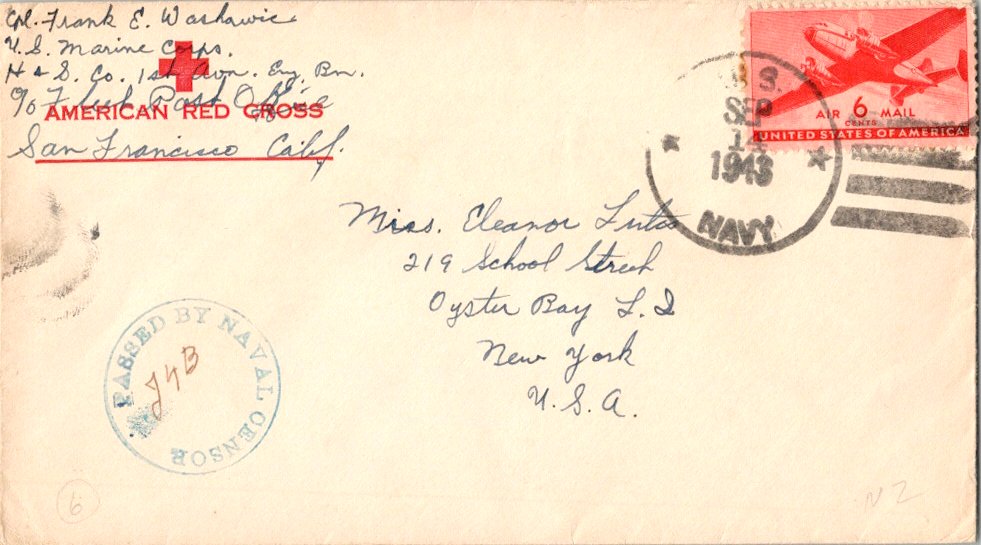 Cpl. Frank E. Washawic
U.S. Marine Corps.
H & S. Co. 1st Avn. Eng. Bn.
c/o Fleet Post Office
AMERICAN RED CROSS
San Francisco Calif.
U.S.
SEP
14
1943
NAVY
AIR 6 MAIL
CENTS
UNITED STATES OF AMERICA
Miss. Eleanor
219 School Street
Oyster Bay L. I
New York
U.S.A.
PASSED BY NAVAL CENSOR
6
NZ